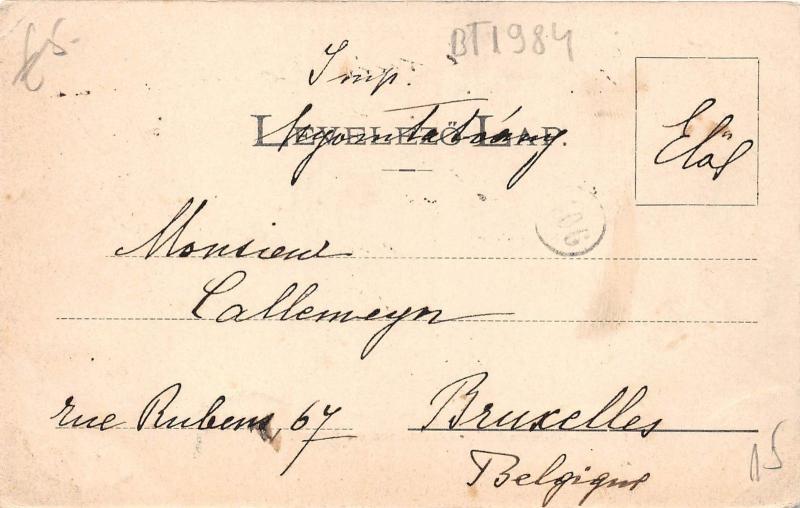 85
BT1984
Imp.
LEVELEZŐ LAP.
Nyomtatvány
Elöl
Monsieur
Callemeyn
rue Rubens, 67
Bruxelles
Belgique
15